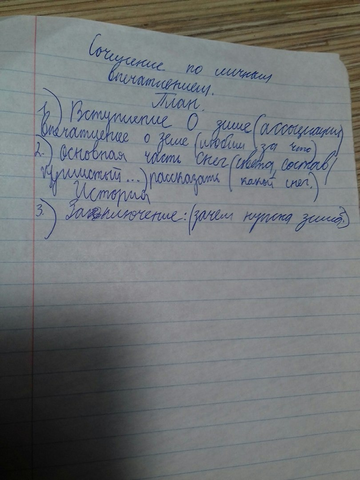 Сочинение по личным
впечатлением.
План.
1.) Вступление О зиме (ассоциация)
впечатление о зиме (любим, за что)
2.) основная часть снег (цвета, состав
пушистый...) рассказать (какой снег.)
История
3.) Заключение: (зачем нужна зима?)